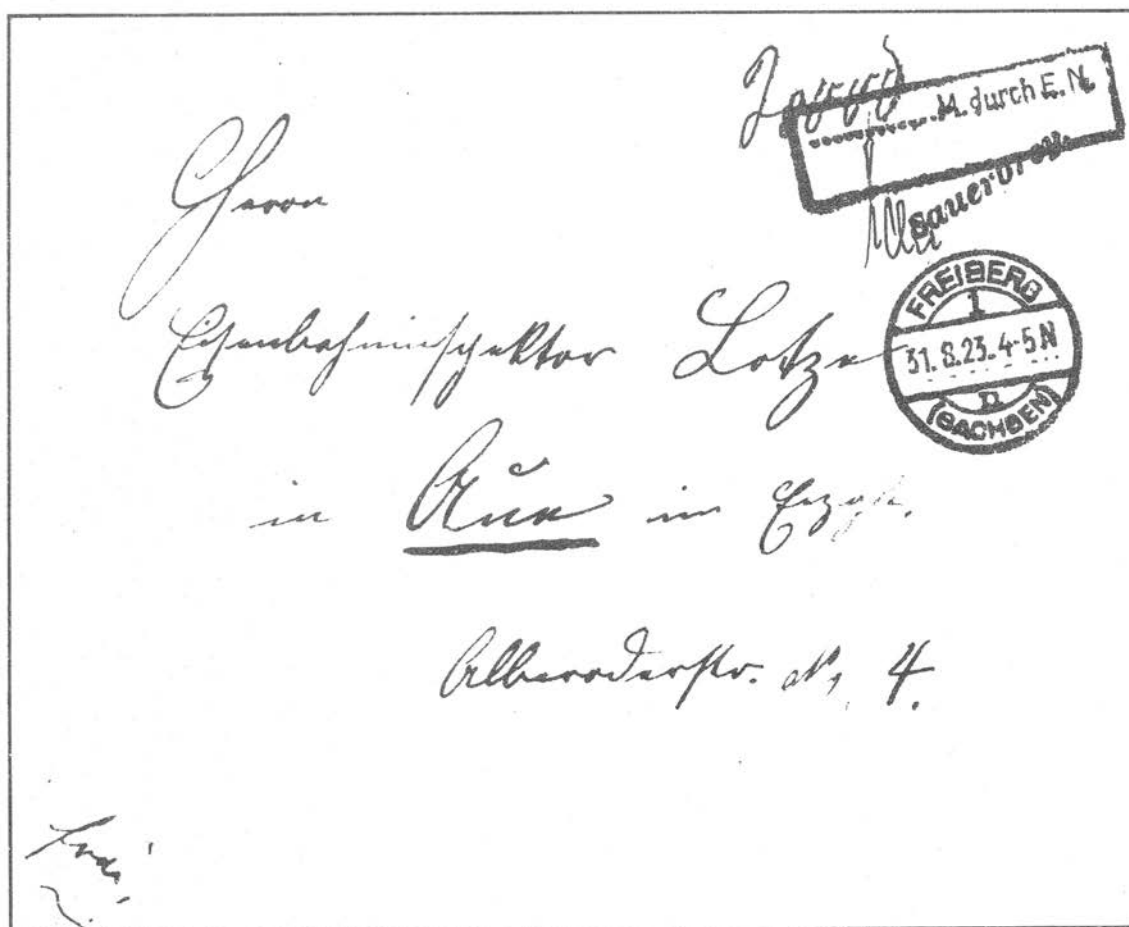 M. durch E. N.
Sauerbrey
Herrn
Eisenbahninspektor Lotze
FREIBERG
1
31. 8. 23. 4-5 N
n
(SACHSEN)
in Aue im Erzgb.
Alberoderstr. No. 4.